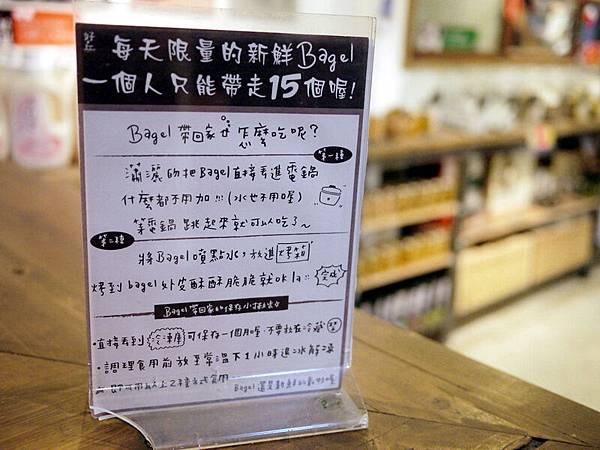 好丘
每天限量的新鮮Bagel
一個人只能帶走15個喔!
Bagel帶回家ㄉ怎麼吃呢?
第一種
瀟灑的把Bagel直接丟進電鍋
什麼都不用加!!!(水也不用喔)
等電鍋跳起來就可以吃了~
第二種
將Bagel噴點水,放進烤箱
烤到bagel外皮酥酥脆脆就ok la!! 完成
Bagel帶回家的保存小撇步
·直接丟到冷凍庫可保存一個月喔,不要放在冷藏
·調理食用前放至常溫下1小時退冰解凍
即可用以上2種方式食用
Bagel還是新鮮的